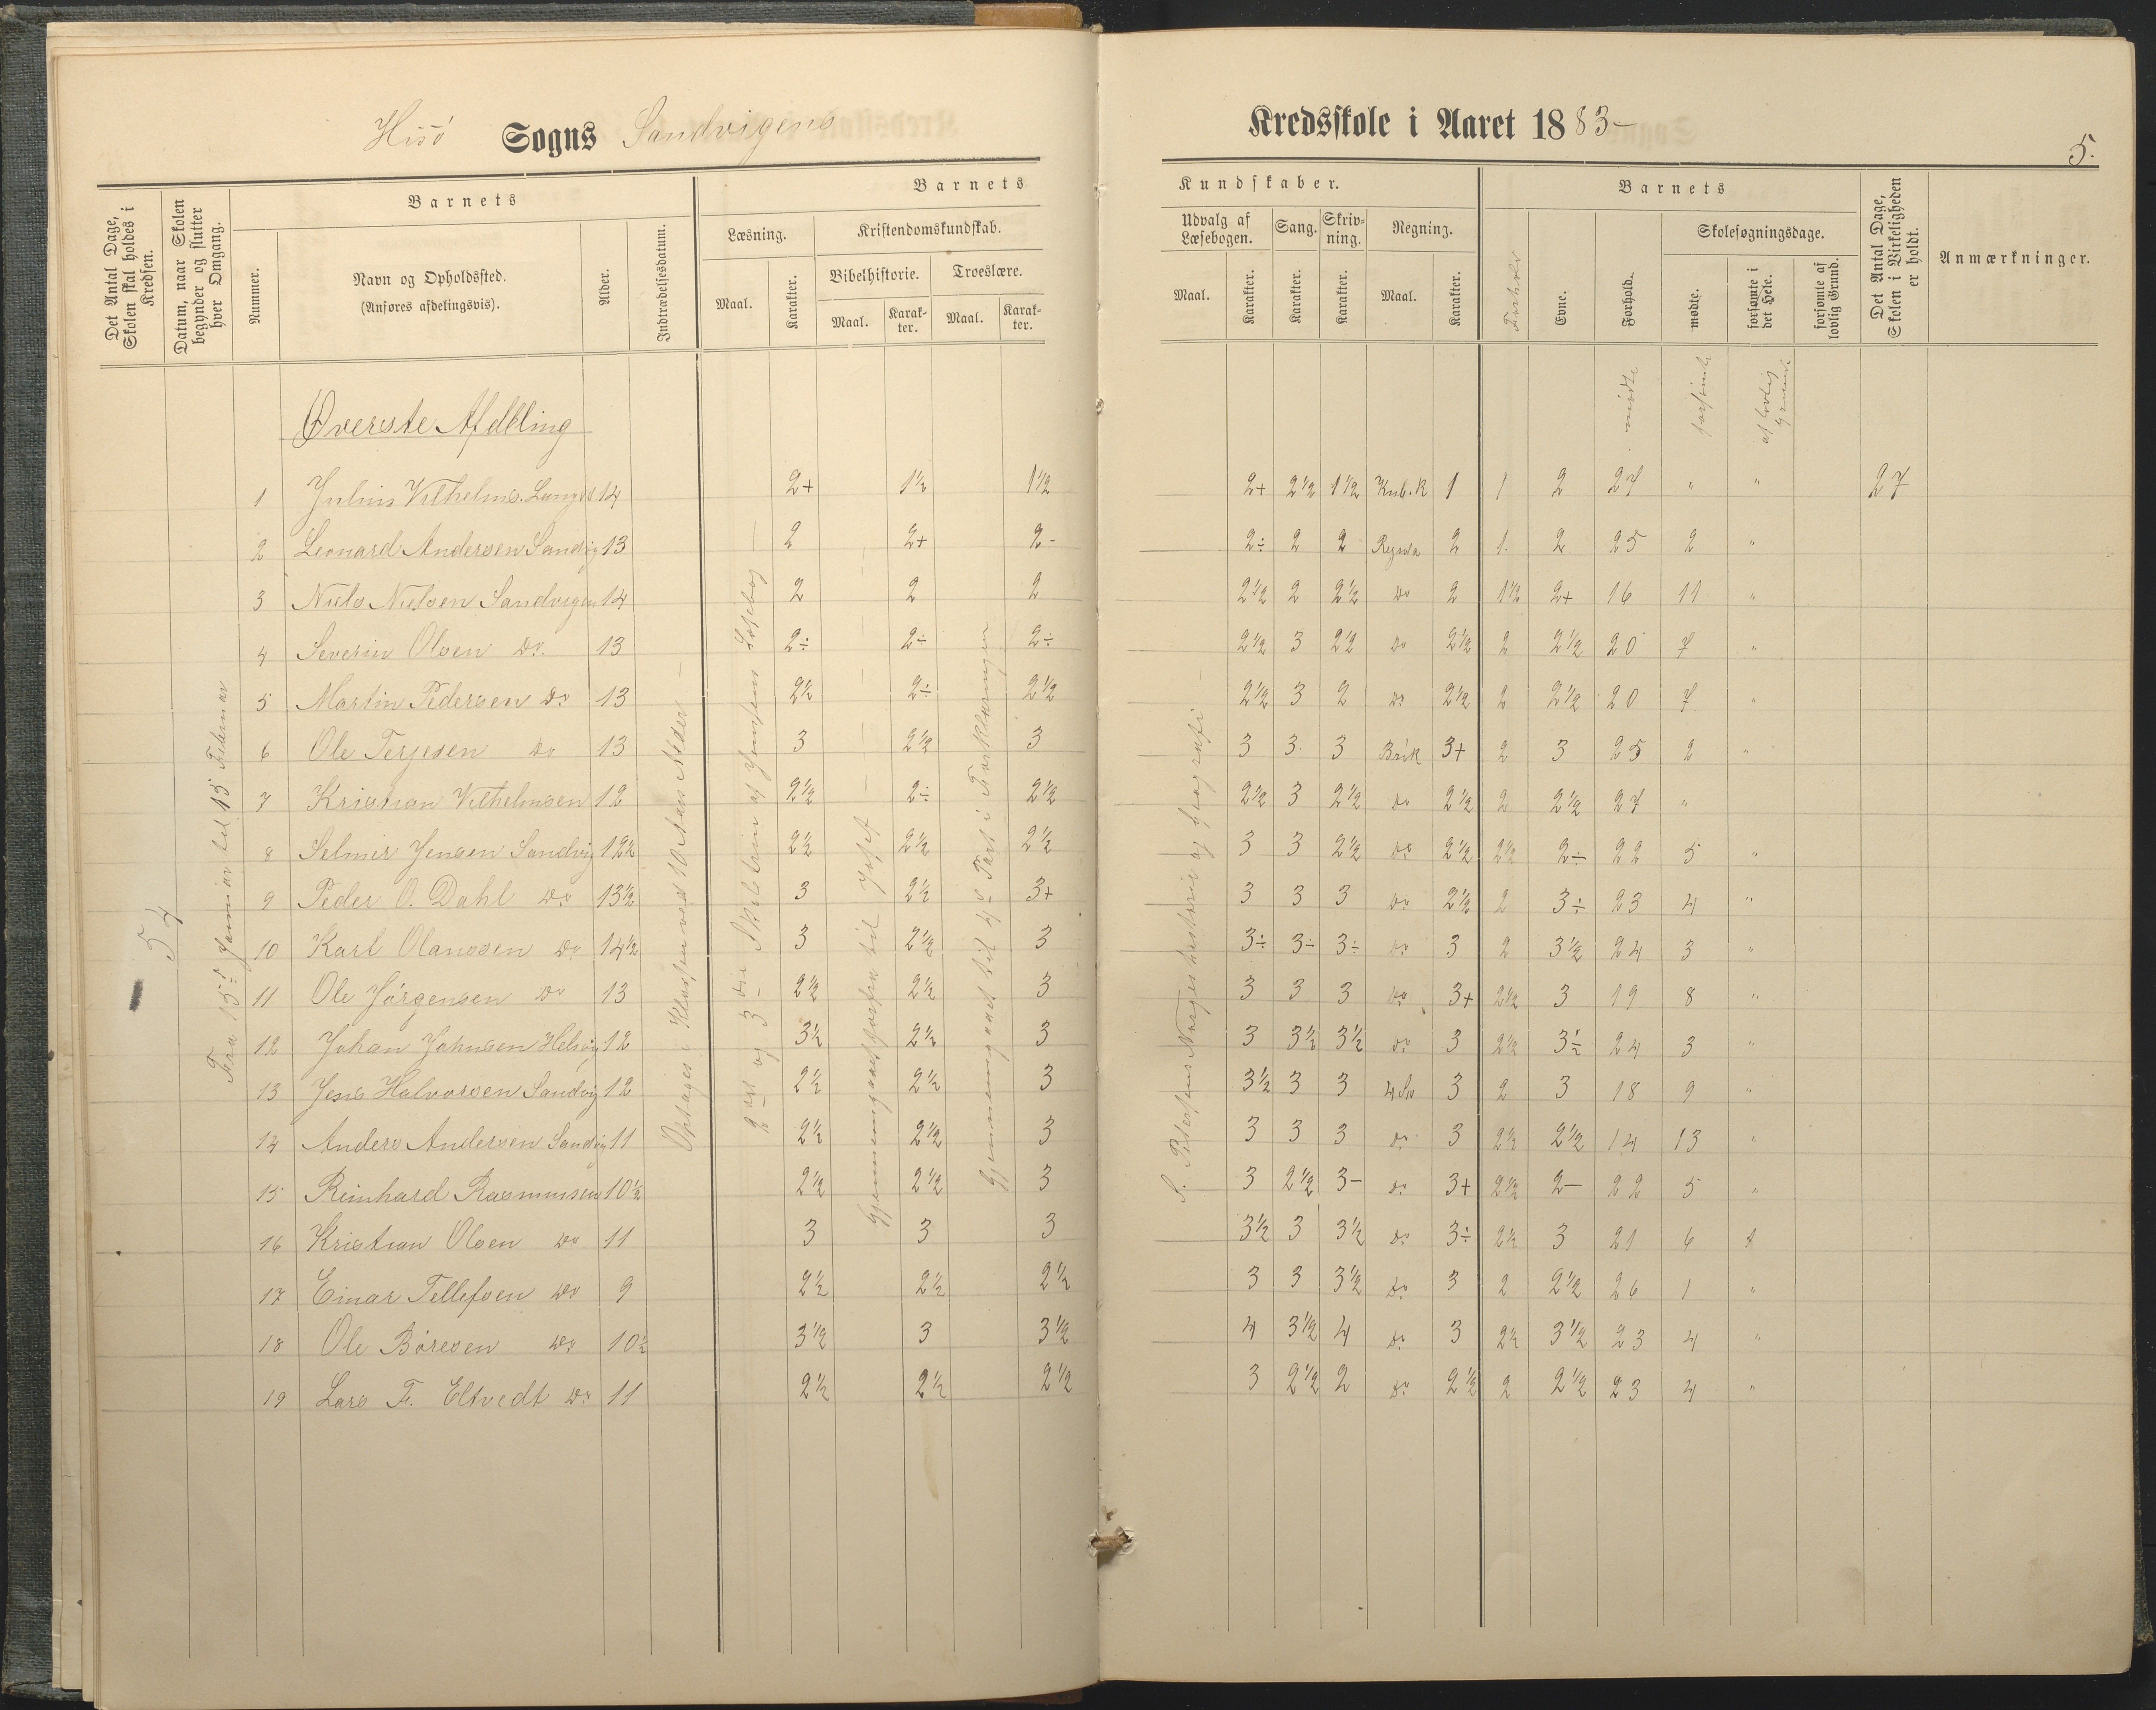 Hisö Sogns Sandvigens Kredsskole i Aaret 1883-
5.
Det Antal Dage, Skolen skal holdes i Kredsen.
Datum, naar Skolen begynder og slutter hver Omgang.
Barnets
Nummer.
Navn og Opholdssted.
(Anføres afdelingsvis).
Alder.
Indtrædelsesdatum.
Barnets
Læsning.
Maal.
Karakter.
Kristendomskundskab.
Bibelhistorie.
Maal.
Karakter.
Troeslære.
Maal.
Karakter.
Kundskaber.
Udvalg af Læsebogen.
Maal.
Karakter.
Sang.
Karakter.
Skrivning.
Karakter.
Regning.
Maal.
Karakter.
Barnets
Forholdt
Evne.
Forhold.
Skolesøgningsdage.
mødte.
forsømte i det Hele.
forsømte af lovlig Grund.
Det Antal Dage, Skolen i Virkeligheden er holdt.
Anmærkninger.
mødte
forsømte
af lovlig Grund
Øverste Afdeling
54
Fra 15de Januar til 15 Februar
Optages i Klassen ved 10 Aars Alder
2det og 3die Skoletrin af Jensens Læsebog
Gjennemgaaet forfra til Josef
Gjennemgaaet til 4de Part i Forklaringen
S. Petersens Norgeshistorie og Geografi
1 Julius Vilhelms. Langs 14 2+ 1½ 1½ 2+ 2½ 1½ Kub.R 1 1 2 27 " " 27
2 Leonard Andersen Sandvig 13 2 2+ 2- 2÷ 2 2 Regula 2 1. 2 25 2 "
3 Niels Nielsen Sandvigen 14 2 2 2 2½ 2 2½ do 2 1½ 2+ 16 11 "
4 Severin Olsen Do. 13 2÷ 2÷ 2÷ 2½ 3 2½ do 2½ 2 2½ 20 7 "
5 Martin Pedersen do 13 2½ 2÷ 2½ 2½ 3 2 do 2½ 2 2½ 20 7 "
6 Ole Terjesen do 13 3 2½ 3 3 3 3 Brøk 3+ 2 3 25 2 "
7 Krisman Vilhelmsen 12 2½ 2÷ 2½ 2½ 3 2½ do 2½ 2 2½ 27 "
8 Selmer Jensen Sandvig 12½ 2½ 2½ 2½ 3 3 2½ do 2½ 2½ 2÷ 22 5 "
9 Peder O. Dahl do 13½ 3 2½ 3+ 3 3 3 do 2½ 2 3÷ 23 4 "
10 Karl Olanssen do 14½ 3 2½ 3 3÷ 3÷ 3÷ do 3 2 3½ 24 3 "
11 Ole Jörgensen do 13 2½ 2½ 3 3 3 3 do 3+ 2½ 3 19 8 "
12 Johan Johnsen Helvig 12 3½ 2½ 3 3 3½ 3½ do 3 2½ 3½ 24 3 "
13 Jens Halvorsen Sandvig 12 2½ 2½ 3 3½ 3 3 4 3 2 3 18 9 "
14 Anders Andersen Sandvig 11 2½ 2½ 3 3 3 3 do 3 2½ 2½ 14 13 "
15 Reinhard Rasmussen 10½ 2½ 2½ 3 3 2½ 3- do 3+ 2½ 2- 22 5 "
16 Kristian Olsen do 11 3 3 3 3½ 3 3½ do 3÷ 2½ 3 21 6
17 Einar Tellefsen do 9 2½ 2½ 2½ 3 3 3½ do 3 2 2½ 26 1 "
18 Ole Böresen do 10½ 3½ 3 3½ 4 3½ 4 do 3 2½ 3½ 23 4 "
19 Lars F. Eltvedt do 11 2½ 2½ 2½ 3 2½ 2 do 2½ 2 2½ 23 4 "